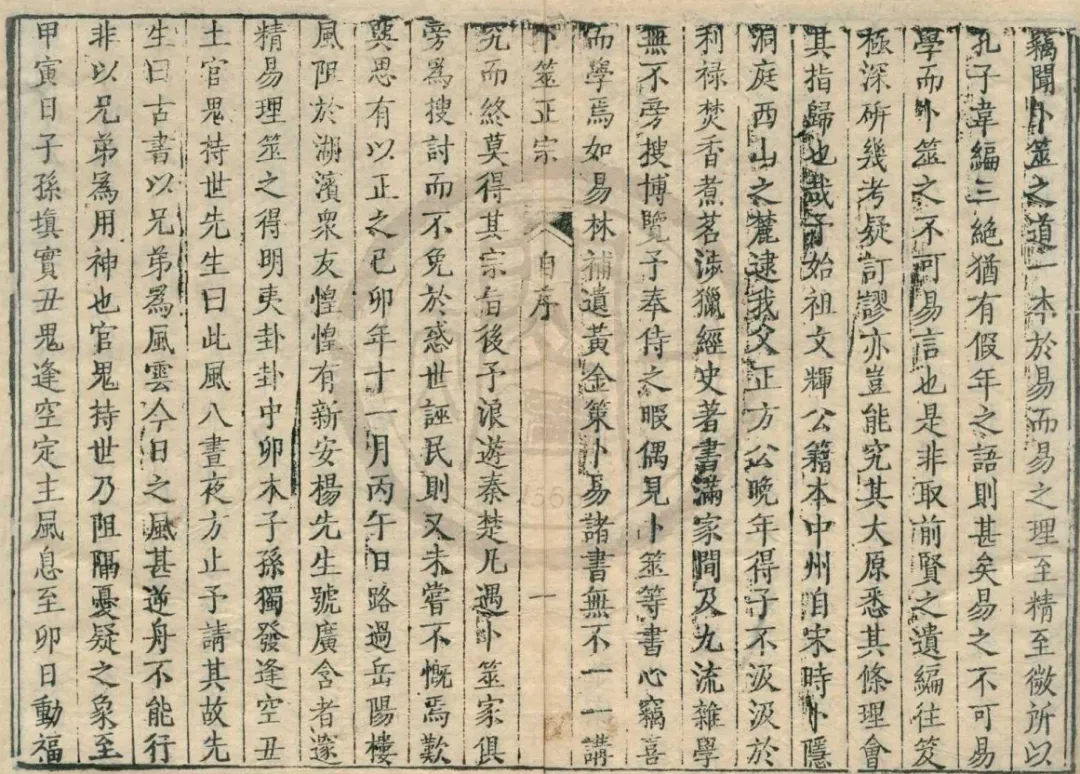 竊聞卜筮之道一本於易而易之理至精至微所以
孔子韋編三絕猶有假年之語則甚矣易之不可易
學而卜筮之不可易言也是非取前賢之遺編往笈
極深研幾考疑訂謬亦豈能究其大原悉其條理會
其指歸也哉予始祖文輝公籍本中州自宋時卜隱
洞庭西山之麓逮我父正方公晚年得予不汲汲於
利祿焚香煮茗涉獵經史著書滿家間及九流雜學
無不旁搜博覽予奉侍之暇偶見卜筮等書心竊喜
而學焉如易林補遺黃金策卜易諸書無不一一講
卜筮正宗 自序 一
究而終莫得其宗旨後予浪遊秦楚凡遇卜筮家俱
旁爲搜討而不免於惑世誣民則又未嘗不慨焉歎
冀思有以正之己卯年十一月丙午日路過岳陽樓
風阻於湖濱衆友惶惶有新安楊先生號廣含者邃
精易理筮之得明夷卦卦中卯木子孫獨發逢空丑
土官鬼持世先生曰此風八晝夜方止予請其故先
生曰古書以兄弟爲風雲今日之風甚逆舟不能行
非以兄弟爲用神也官鬼持世乃阻隔憂疑之象至
甲寅日子孫塡實丑鬼逢空定主風息至卯日動福